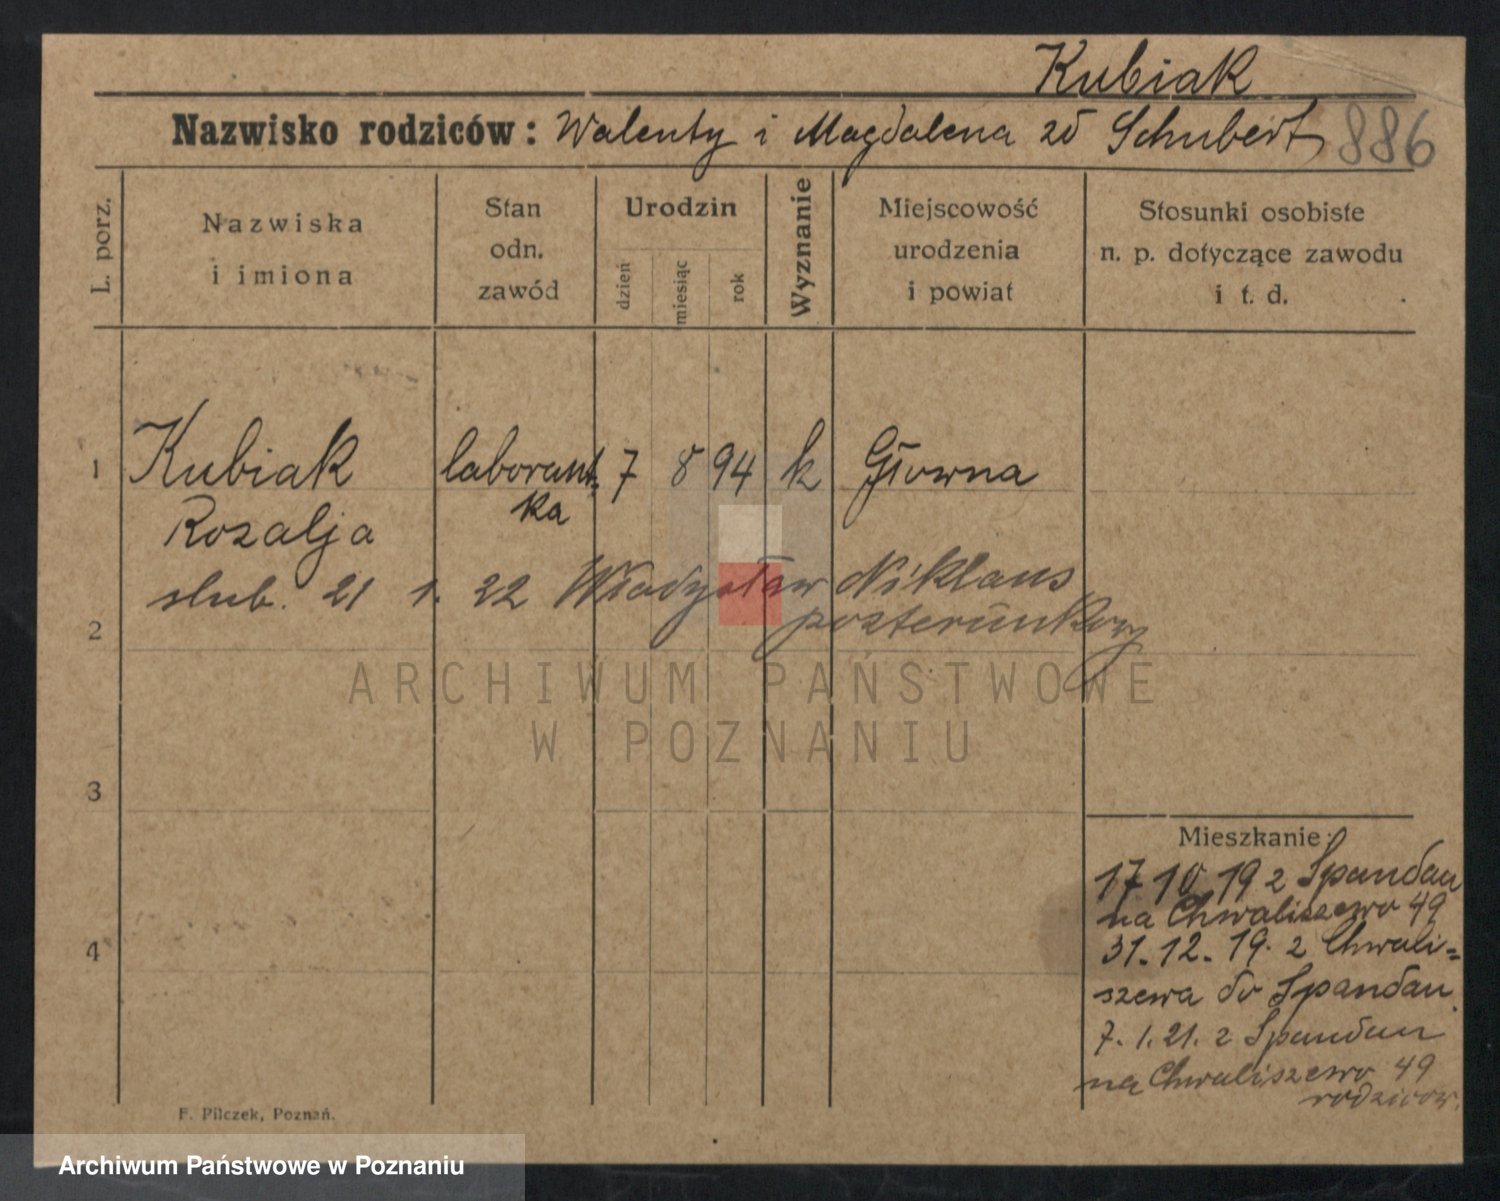 Kubiak
Nazwisko rodziców: Walenty i Magdalena zd Schubert 886
L. porz.
Nazwiska
i imiona
Stan
odn.
zawód
Urodzin
dzień
miesiąc
rok
Wyznanie
Miejscowość
urodzenia
i powiat
Stosunki osobiste
n. p. dotyczące zawodu
i t. d.
1 Kubiak laborant= 7 8 94 k Główna
ka
Rozalja
slub. 21 1. 22 Władysław Niklaus
posterunkowy
2
ARCHIWUM PAŃSTWOWE
W POZNANIU
3
Mieszkanie
17 10 19 z Spandau
na Chwaliszewo 49
4
31. 12. 19. z Chwali=
szewa do Spandau.
7. 1. 21. z Spandau
na Chwaliszewo 49
rodziców.
F. Pilczek, Poznań.
Archiwum Państwowe w Poznaniu